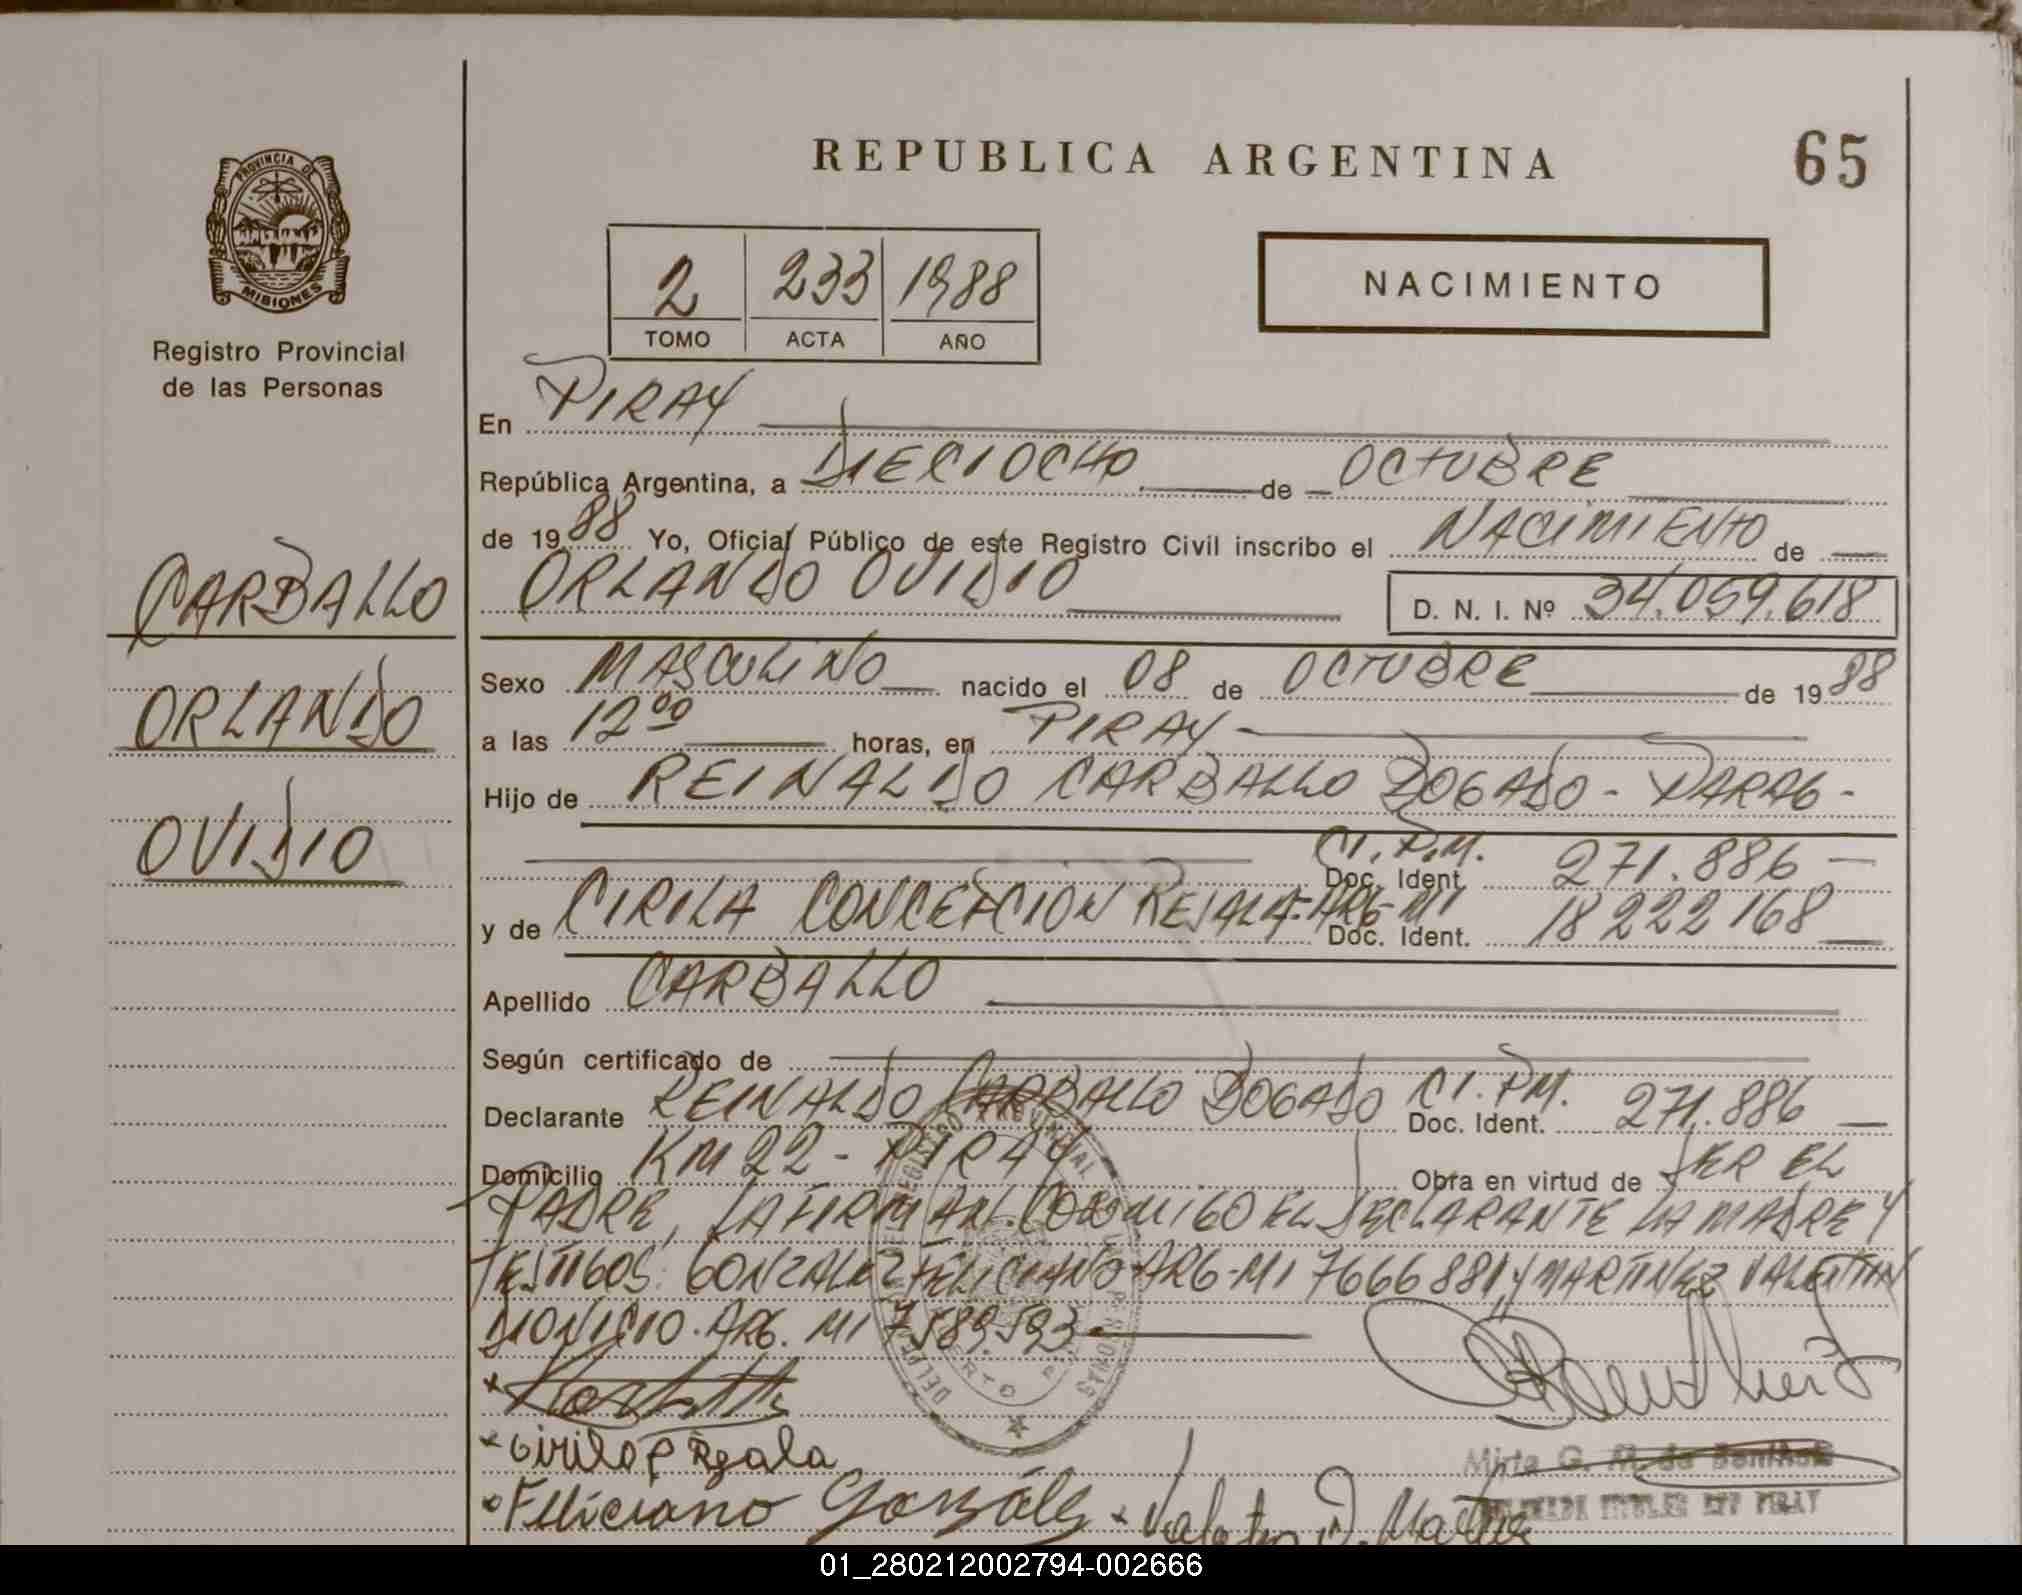 REPUBLICA ARGENTINA
65
PROVINCIA DE
MISIONES
Registro Provincial
de las Personas
2 233 1988
TOMO ACTA AÑO
NACIMIENTO
En PIRAY
República Argentina, a DIECIOCHO de OCTUBRE
de 1988 Yo, Oficial Público de este Registro Civil inscribo el NACIMIENTO de
ORLANDO OVIDIO D. N. I. Nº 34.059.618
CARBALLO
ORLANDO
OVIDIO
Sexo MASCULINO nacido el 08 de OCTUBRE de 1988
a las 12 00 horas, en PIRAY
Hijo de REINALDO CARBALLO BOGADO - PARAG -
CI. P.M. Doc. Ident. 271.886
y de CIRILA CONCEPCION REJALA - ARG - MI Doc. Ident. 18 222 168
Apellido CARBALLO
Según certificado de
Declarante REINALDO CARBALLO BOGADO CI. PM. Doc. Ident. 271.886
Domicilio KM 22 - PIRAY Obra en virtud de SER EL
PADRE, LA FIRMAN CONMIGO EL DECLARANTE LA MADRE Y
TESTIGOS: GONZALEZ FELICIANO - ARG - MI 7666881 y MARTINEZ VALENTIN
DIONICIO. ARG. MI 7589.593
Feliciano González
Mirta G. M. de
01_280212002794-002666